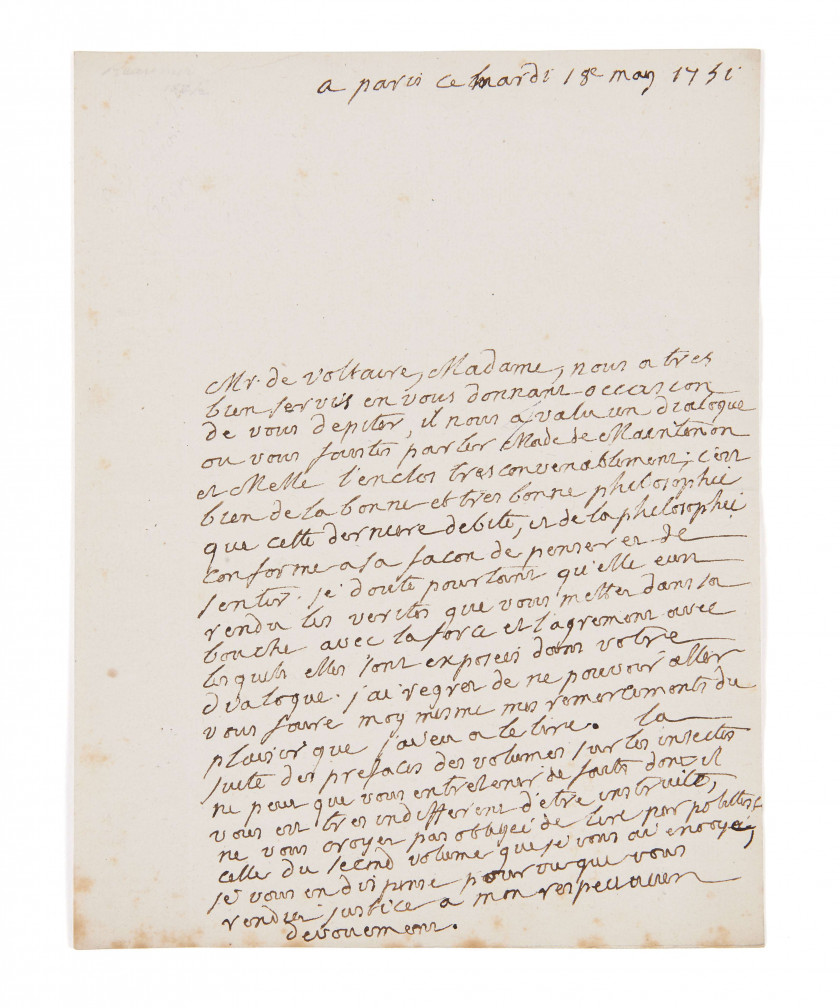 a paris ce mardi 18e may 1751
Mr. de voltaire, Madame, nous a tres
bien servis en vous donnant occasion
de vous depiter, il nous a valu un dialogue
ou vous faites parler Made de Maintenon
et Melle l'enclos tres convenablement; c'est
bien de la bonne et tres bonne philosophie
que cette derniere debite, et de la philosophie
conforme a sa façon de penser et de
sentir. je doute pourtant qu'elle eut
rendu les verites que vous mettes dans sa
bouche avec la force et l'agrement avec
lesquels elles sont exposées dans votre
dialogue. j'ai regret de ne pouvoir aller
vous faire moy mesme mes remerciments du
plaisir que j'ay eu a le lire. la
suite des prefaces des volumes sur les insectes
ne peut que vous entretenir de faits dont il
vous est tres indifferent d'être instruite,
ne vous croyez pas obligée de lire par politesse
celle du second volume que je vous ai envoyé,
je vous en dispense pourvu que vous
rendiez justice a mon respectueux
devouement.